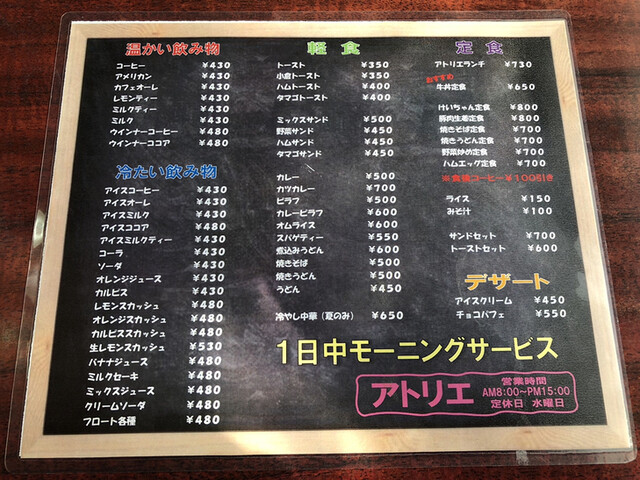 温かい飲み物
コーヒー ￥430
アメリカン ￥430
カフェオーレ ￥430
レモンティー ￥430
ミルクティー ￥430
ミルク ￥430
ウインナーコーヒー ￥480
ウインナーココア ￥480
冷たい飲み物
アイスコーヒー ￥430
アイスオーレ ￥430
アイスミルク ￥430
アイスココア ￥480
アイスミルクティー ￥430
コーラ ￥430
ソーダ ￥430
オレンジジュース ￥430
カルピス ￥430
レモンスカッシュ ￥480
オレンジスカッシュ ￥480
カルピススカッシュ ￥480
生レモンスカッシュ ￥530
バナナジュース ￥480
ミルクセーキ ￥480
ミックスジュース ￥480
クリームソーダ ￥480
フロート各種 ￥480
軽食
トースト ￥350
小倉トースト ￥350
ハムトースト ￥400
タマゴトースト ￥400
ミックスサンド ￥500
野菜サンド ￥450
ハムサンド ￥450
タマゴサンド ￥450
カレー ￥500
カツカレー ￥700
ピラフ ￥500
カレーピラフ ￥600
オムライス ￥600
スパゲティー ￥550
煮込みうどん ￥600
焼きそば ￥500
焼きうどん ￥500
うどん ￥450
冷やし中華（夏のみ） ￥650
定食
アトリエランチ ￥730
おすすめ
牛丼定食 ￥650
けいちゃん定食 ￥800
豚肉生姜定食 ￥800
焼きそば定食 ￥700
焼きうどん定食 ￥700
野菜炒め定食 ￥700
ハムエッグ定食 ￥700
※食後コーヒー￥100引き
ライス ￥150
みそ汁 ￥100
サンドセット ￥700
トーストセット ￥600
デザート
アイスクリーム ￥450
チョコパフェ ￥550
１日中モーニングサービス
アトリエ
営業時間
AM8:00～PM15:00
定休日 水曜日